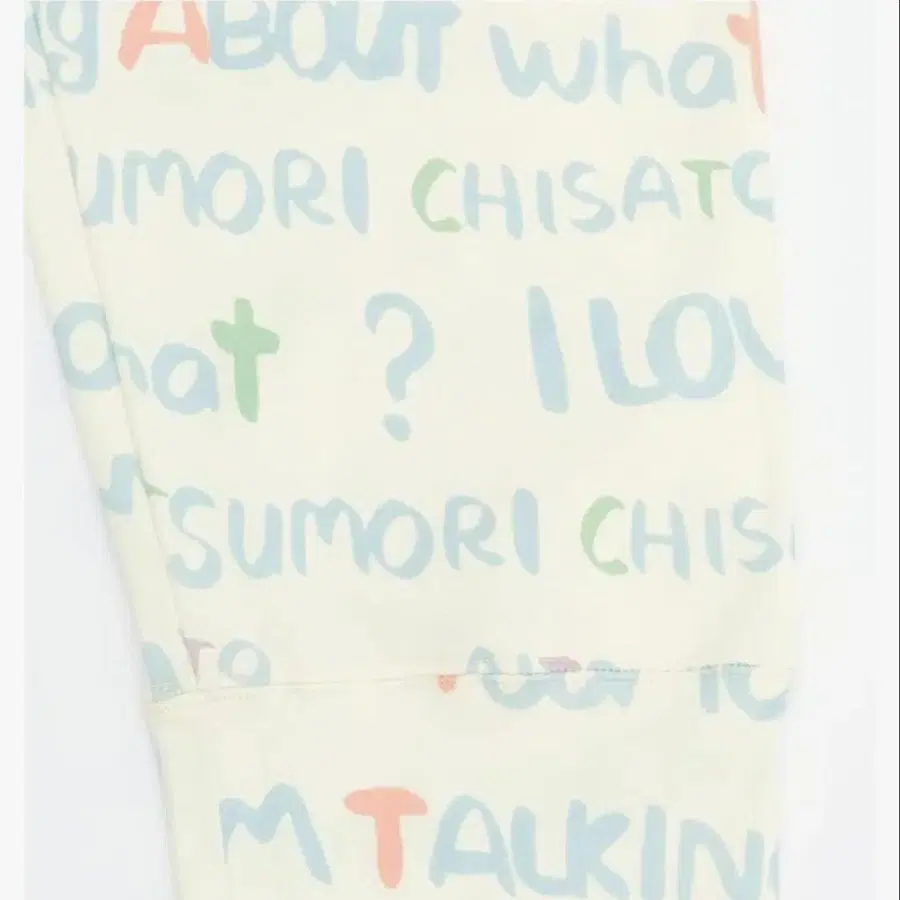 g ABOUT what
SUMORI CHISATO
what ? I LOV
TSUMORI CHIS
ATO
M TALKING